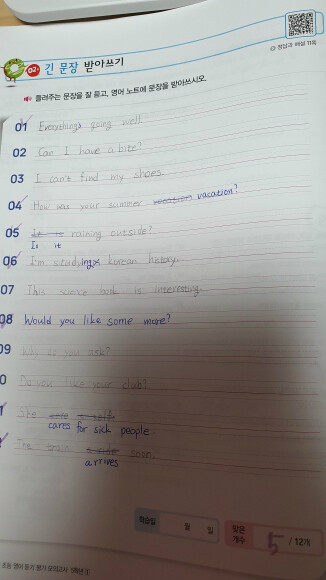 정답과 해설 기록
02 긴 문장 받아쓰기
들려주는 문장을 잘 듣고, 영어 노트에 문장을 받아쓰시오.
01 Everythings going well.
02 Can I have a bite?
03 I can't find my shoes.
04 How was your summer vacation vacation?
05 It is raining outside?
Is it
06 I'm studying korean history.
07 This science book is interesting.
08 Would you like some more?
09 Why do you ask?
0 Do you like your club?
She
cares for sick people.
The train soon.
arrives
학습일 월 일
맞은 개수 5 / 12개
초등 영어 듣기 평가 모의고사